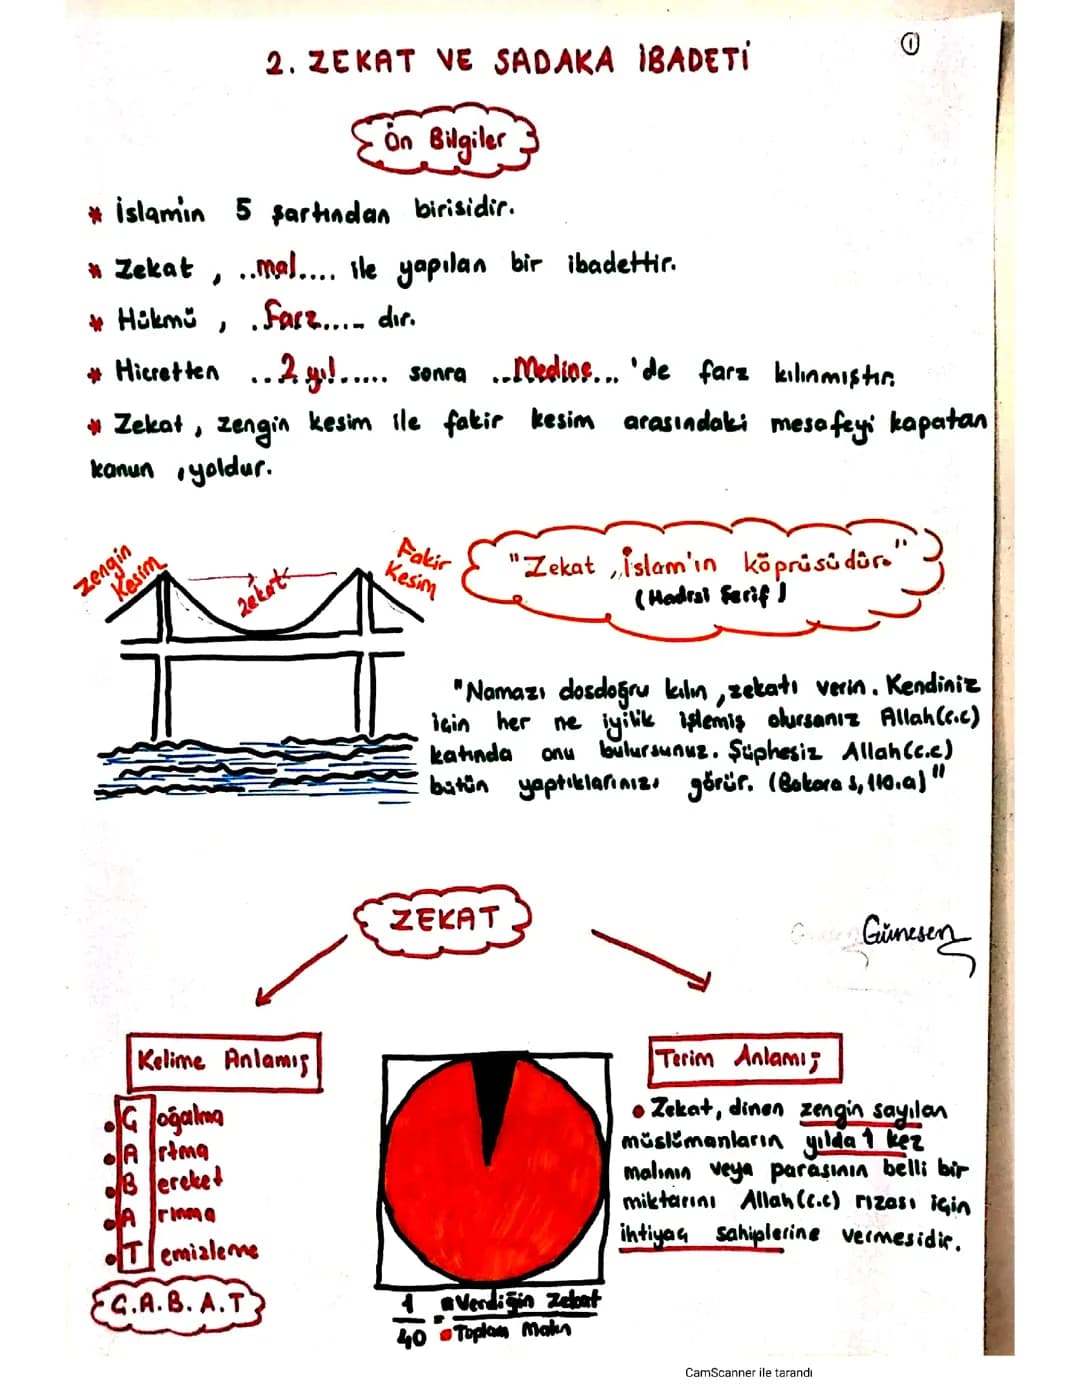 1
2. ZEKAT VE SADAKA İBADETİ
Ön Bilgiler
* İslam'ın 5 şartından birisidir.
* Zekat, ..mal.... ile yapılan bir ibadettir.
* Hükmü, .farz..... dır.
* Hicretten ..2 yıl...... sonra ..Medine... 'de farz kılınmıştır.
* Zekat, zengin kesim ile fakir kesim arasındaki mesafeyi kapatan
kanun, yoldur.
Zengin
Kesim
zekat
Fakir
Kesim
"Zekat, İslam'ın köprüsüdür."
(Hadisi Şerif)
"Namazı dosdoğru kılın, zekatı verin. Kendiniz
için her ne iyilik işlemiş olursanız Allah(c.c)
katında onu bulursunuz. Şüphesiz Allah(c.c)
bütün yaptıklarınızı görür. (Bakara s, 110.a)"
ZEKAT
Günesen
Kelime Anlamı;
• Çoğalma
• Artma
• Bereket
• Arınma
• Temizleme
Ç.A.B.A.T
1/40 = Verdiğin Zekat
Toplam Malın
Terim Anlamı;
• Zekat, dinen zengin sayılan
müslümanların yılda 1 kez
malının veya parasının belli bir
miktarını Allah(c.c) rızası için
ihtiyaç sahiplerine vermesidir.
CamScanner ile tarandı